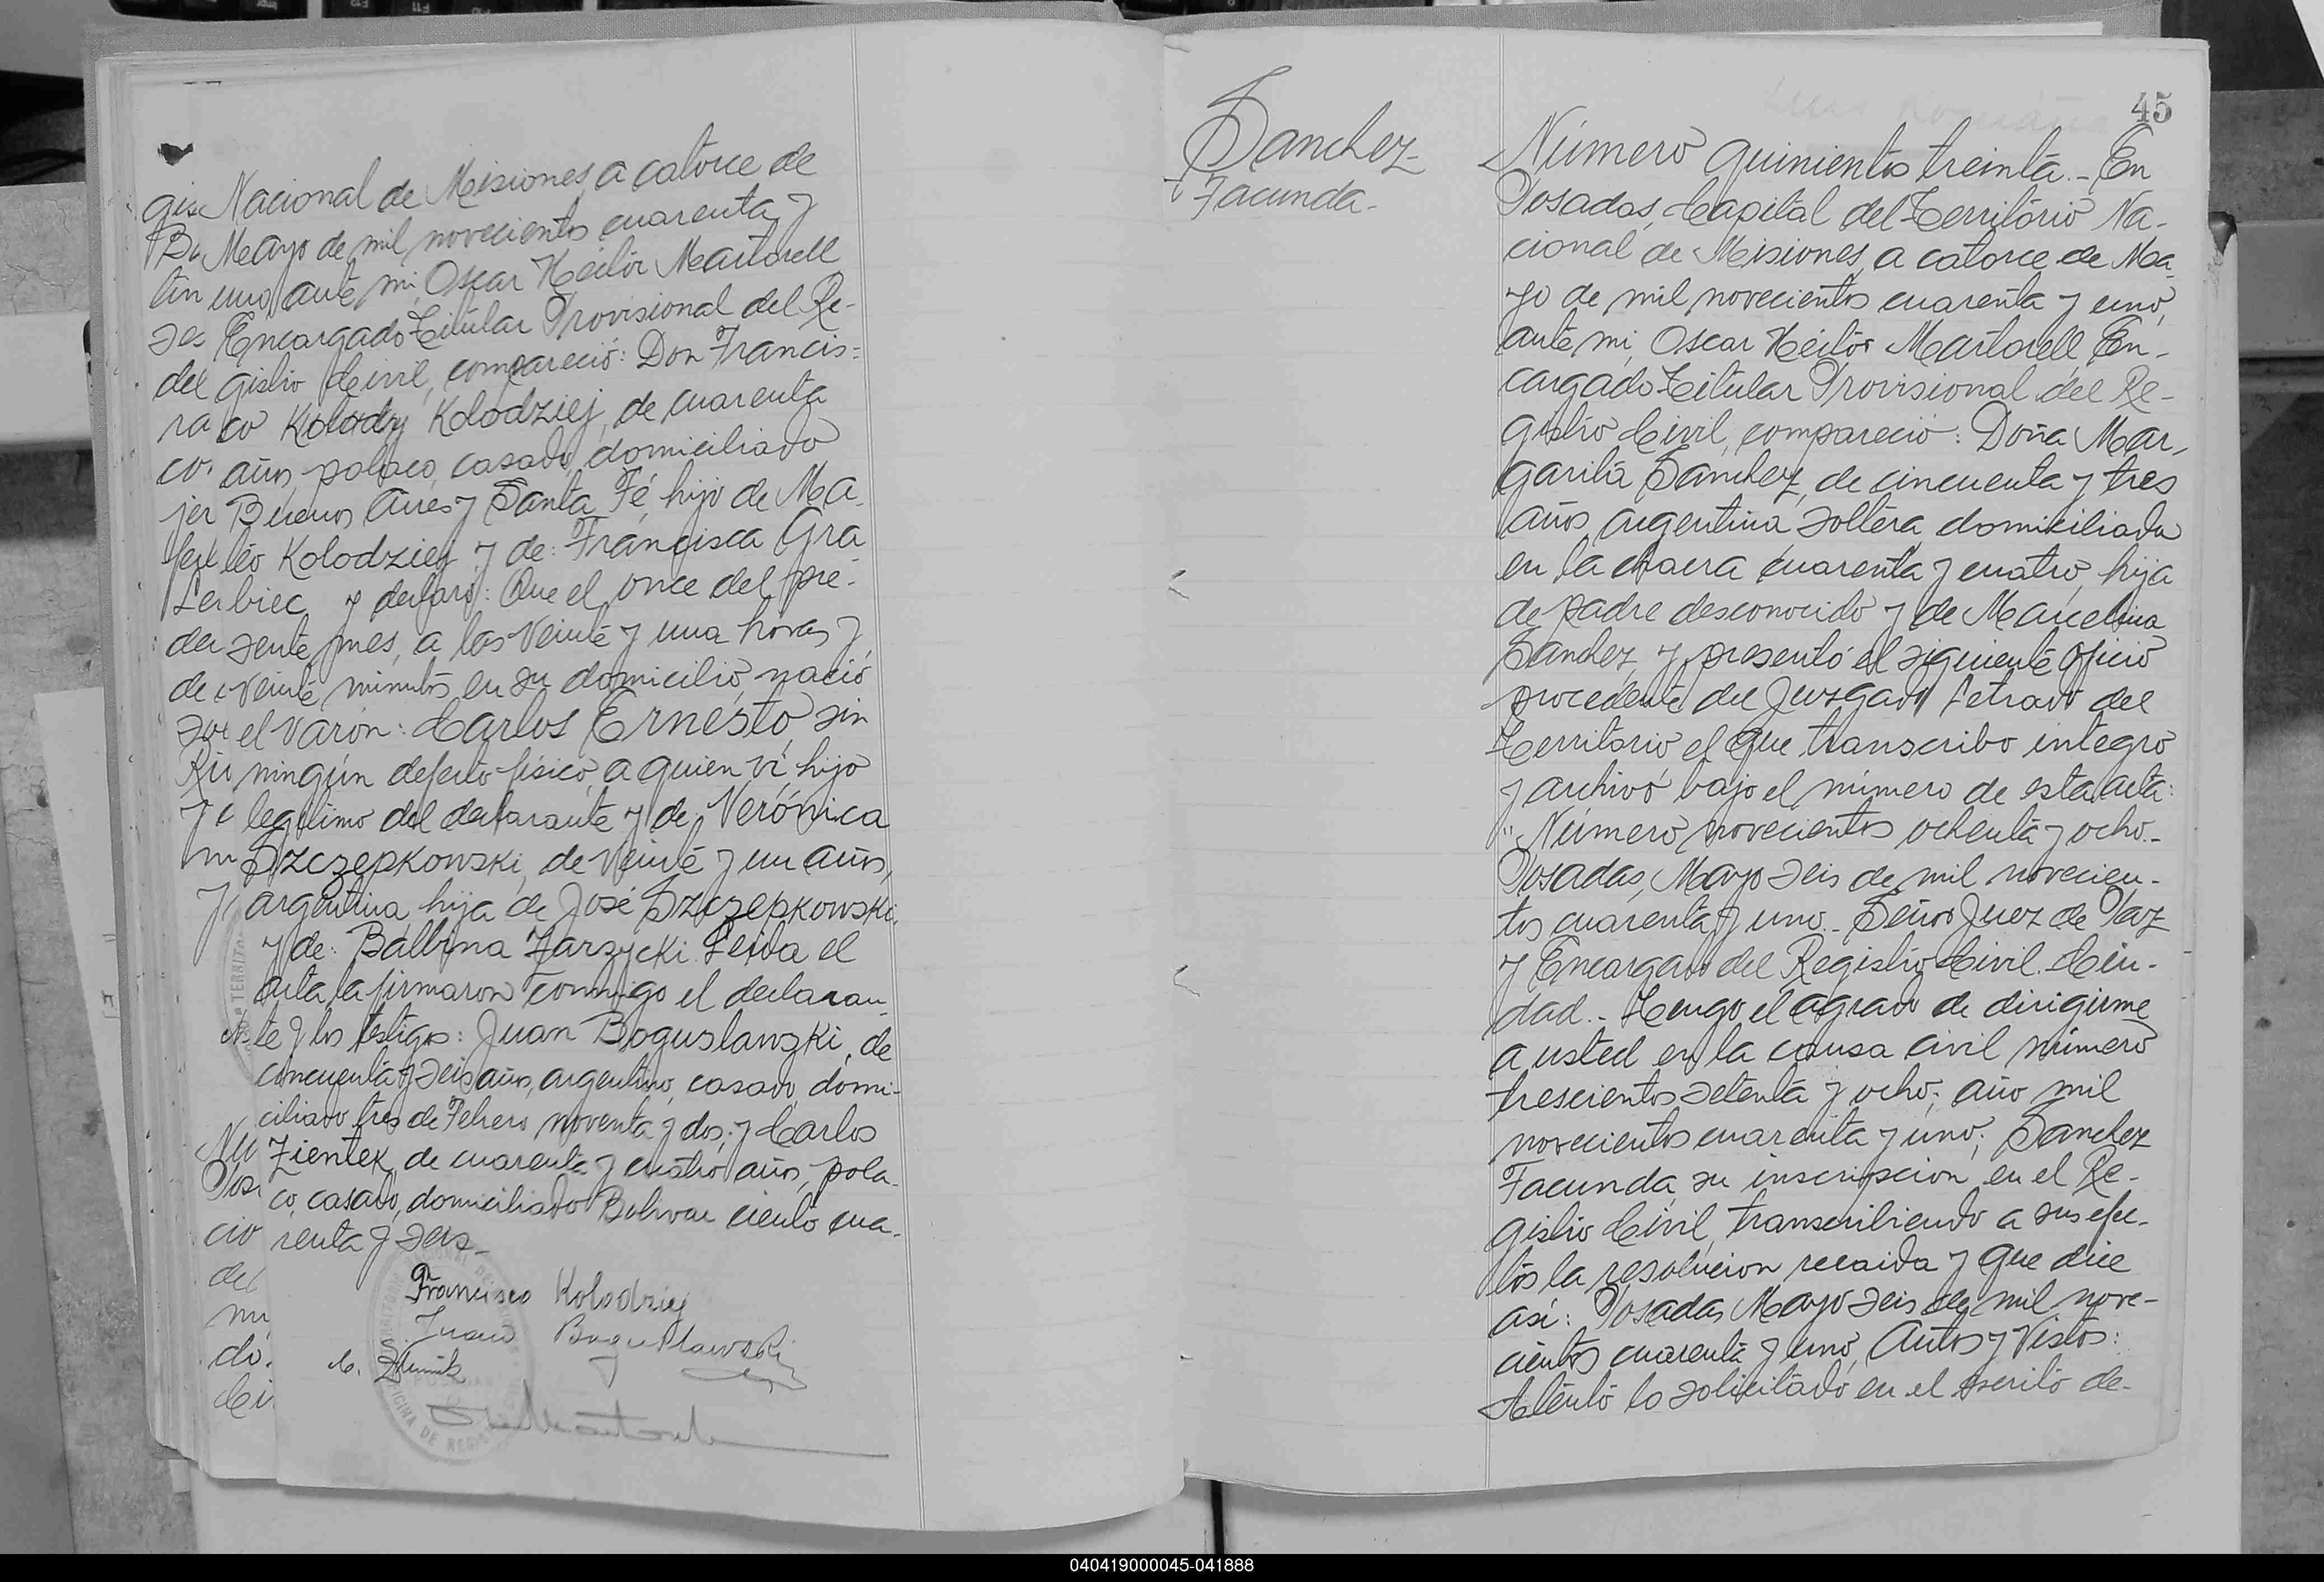 Nacional de Misiones, a catorce de
Mayo de mil novecientos cuarenta y
uno, ante mi, Oscar Hector Martorell
Encargado Titular Provisional del Re-
gistro Civil, compareció: Don Francis-
co Kolodzy Kolodziej, de cuarenta
años, polaco, casado, domiciliado
Buenos Aires y Santa Fé, hijo de Ma-
teo Kolodziej y de: Francisca Gra
biec, y declaró: Que el once del pre-
sente mes, a las veinte y una horas y
veinte minutos en su domicilio, nació
el varón: Carlos Ernesto sin
ningún defecto físico, a quien ví hijo
legítimo del declarante y de Verónica
Szczepkowski, de veinte y un años,
argentina, hija de José Szczepkowski
y de: Balbina Zarzycki. Leida el
acta, la firmaron conmigo el declaran-
te y los testigos: Juan Boguslawski, de
cincuenta y seis años, argentino, casado, domi-
ciliado tres de Febrero noventa y dos; y Carlos
Zientek, de cuarenta y cuatro años, pola-
co, casado, domiciliado Bolivar ciento cua-
renta y seis.-
Francisco Kolodziej
Juan Boguslawski
Sanchez
Facunda.-
45
Número quinientos treinta.- En
Posadas, Capital del Territorio Na-
cional de Misiones, a catorce de Ma-
yo de mil novecientos cuarenta y uno,
ante mi, Oscar Hector Martorell, En-
cargado Titular Provisional del Re-
gistro Civil, compareció: Doña Mar-
garita Sanchez, de cincuenta y tres
años, argentina, soltera, domiciliada
en la chacra cuarenta y cuatro, hija
de padre desconocido y de Marcelina
Sanchez, y presentó el siguiente oficio
procedente del Juzgado Letrado del
Territorio, el que transcribo integro
y archivo bajo el número de esta acta:
"Número novecientos ochenta y ocho.-
Posadas, Mayo seis de mil novecien-
tos cuarenta y uno.- Señor Juez de Paz
y Encargado del Registro Civil. Ciu-
dad.- Tengo el agrado de dirigirme
a usted en la causa civil número
trescientos setenta y ocho; año mil
novecientos cuarenta y uno; Sanchez
Facunda su inscripcion en el Re-
gistro Civil, transcribiendo a sus efec-
tos la resolucion recaida y que dice
así: Posadas, Mayo seis de mil nove-
cientos cuarenta y uno, Autos y Vistos:
Atento lo solicitado en el escrito de-
040419000045-041888